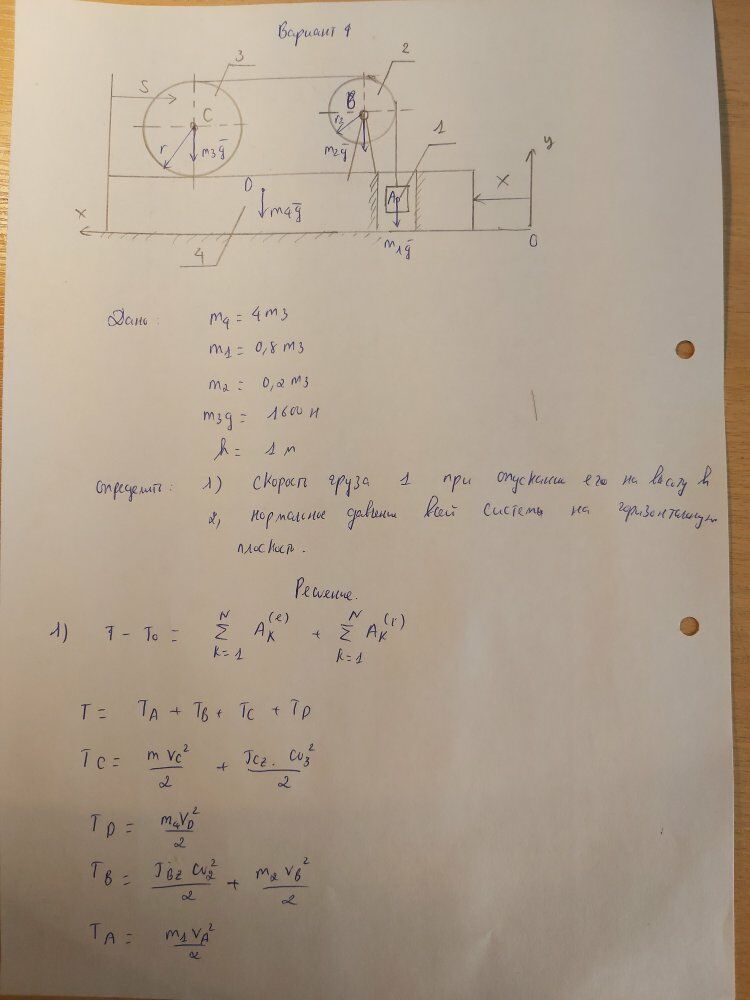 Вариант 9
3
2
S
C
B
1
r
r2
m₃g̅
m₂g̅
y
A
X
D
m₄g̅
x
4
m₁g̅
0
Дано: m₄ = 4m₃
m₁ = 0,8 m₃
m₂ = 0,2 m₃
m₃g = 1600 Н
h = 1 м
Определить: 1) Скорость груза 1 при опускании его на высоту h
2, нормальное давление всей системы на горизонтальную
плоскость.
Решение.
1) T - T₀ = Σ (k=1, N) A_K^(e) + Σ (k=1, N) A_K^(i)
T = T_A + T_B + T_C + T_D
T_C = m V_C²/2 + J_Cz · ω₃²/2
T_D = m₄V_D²/2
T_B = J_Bz ω₂²/2 + m₂ V_B²/2
T_A = m₁ V_A²/2